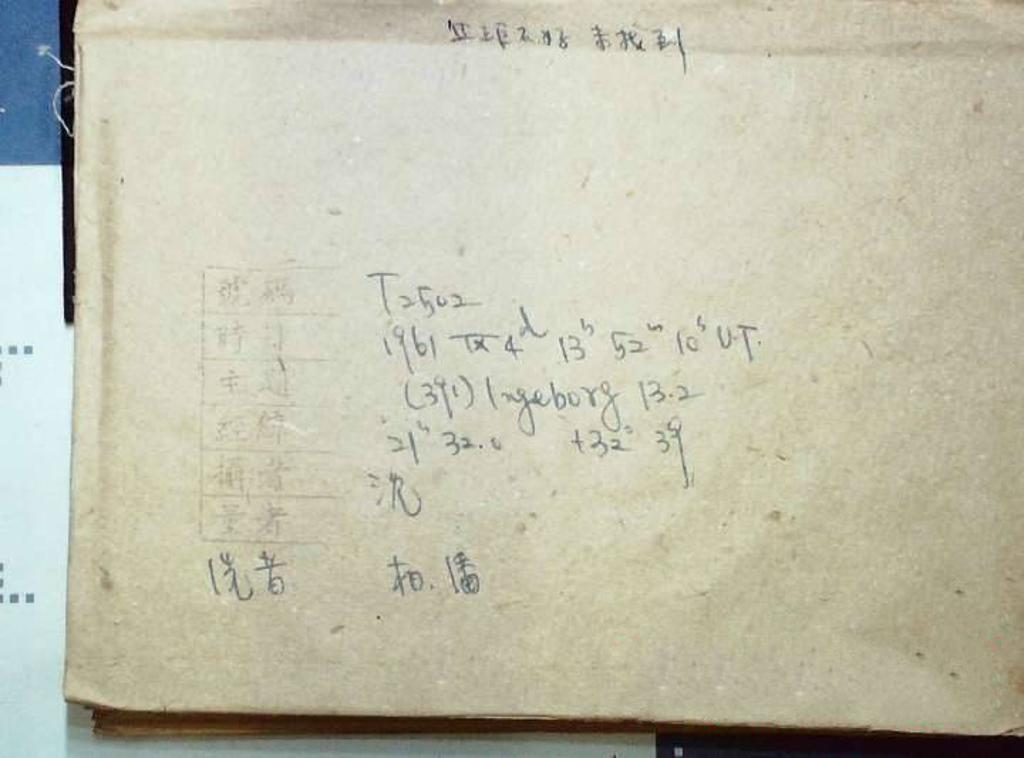 不好 未找到
號碼 T2502
時刻 1961 IX 4ᵈ 13ʰ 52ᵐ 10ˢ U.T.
主題 (391) Ingeborg 13.2
經緯 21ʰ 32.0 +32° 39'
攝者 沈
量者
洗者 柏.潘